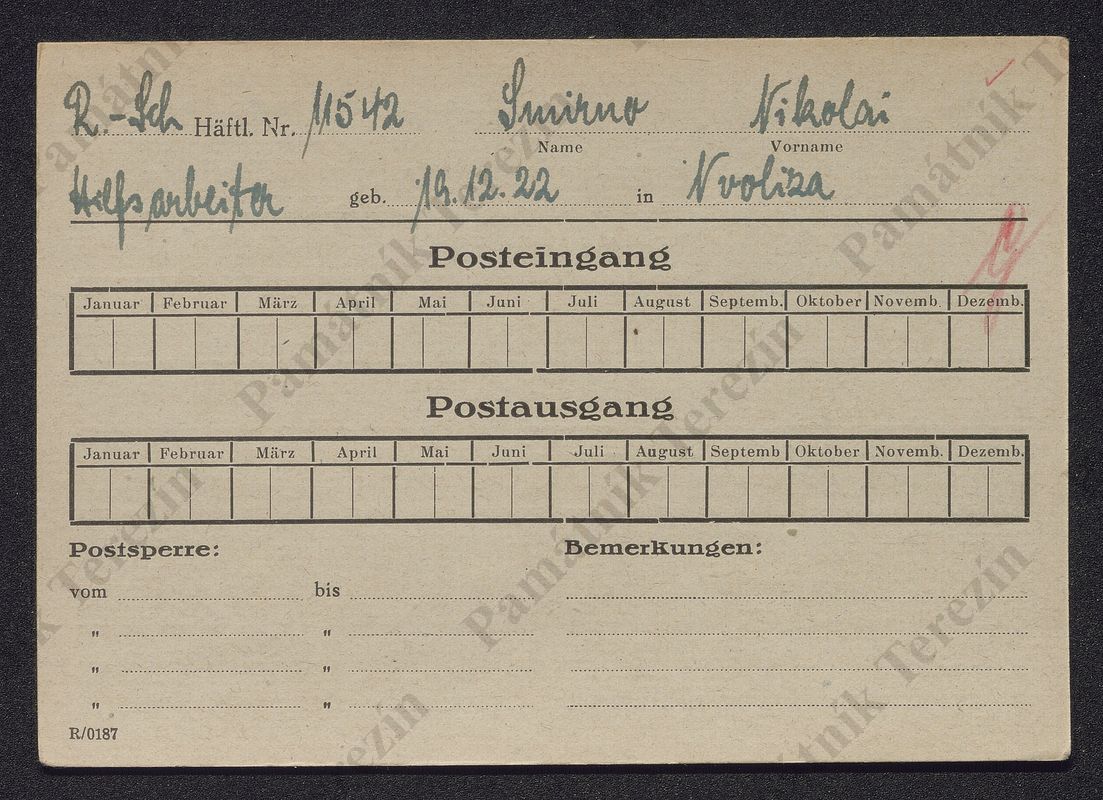 R.-Sch Häftl. Nr. 11542 Smirno Nikolai
Name Vorname
Hilfsarbeiter geb. 19.12.22 in
Posteingang
Januar Februar März April Mai Juni Juli August Septemb. Oktober Novemb. Dezemb.
Postausgang
Januar Februar März April Mai Juni Juli August Septemb Oktober Novemb. Dezemb.
Postsperre: Bemerkungen:
vom bis
" "
" "
" "
R/0187
Památník Terezín